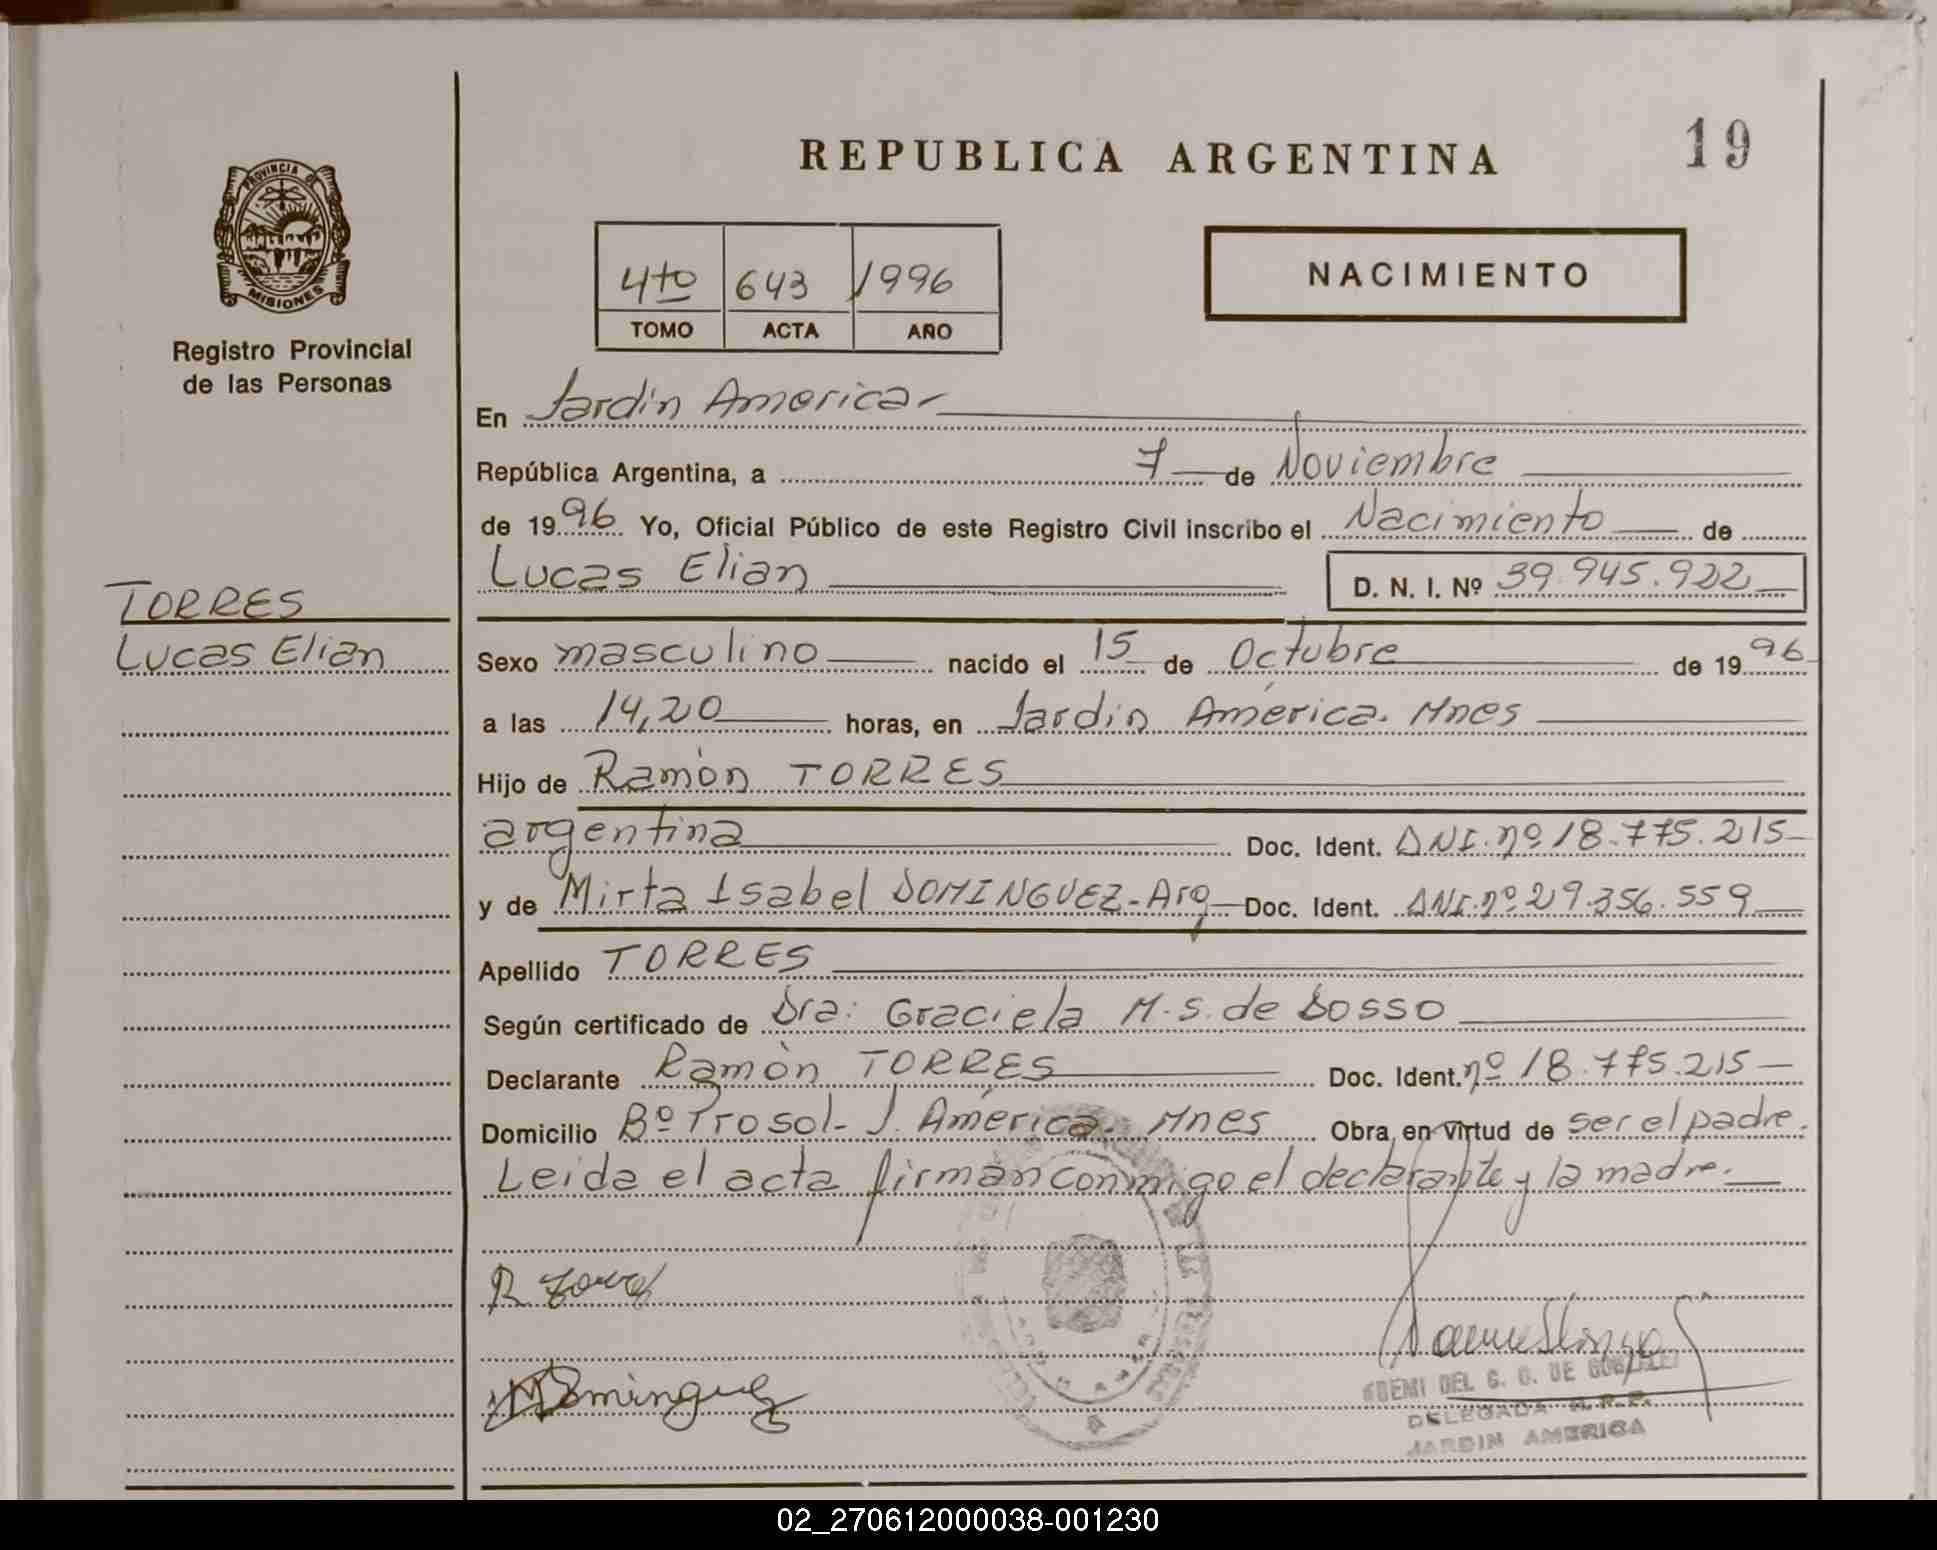 REPUBLICA ARGENTINA
19
PROVINCIA DE
MISIONES
Registro Provincial
de las Personas
4to 643 1996
TOMO ACTA AÑO
NACIMIENTO
En Jardin America
República Argentina, a 7 de Noviembre
de 1996 Yo, Oficial Público de este Registro Civil inscribo el Nacimiento de
Lucas Elian D. N. I. Nº 39.945.922
TORRES
Lucas Elian
Sexo masculino nacido el 15 de Octubre de 1996
a las 14,20 horas, en Jardin América. Mnes
Hijo de Ramòn TORRES
argentina Doc. Ident. DNI. nº 18.775.215
y de Mirta Isabel DOMINGUEZ-Arg Doc. Ident. DNI. nº 29.356.559
Apellido TORRES
Según certificado de Dra: Graciela M. S. de Dosso
Declarante Ramòn TORRES Doc. Ident. nº 18.775.215
Domicilio Bº Prosol- J. América. Mnes Obra en virtud de ser el padre.
Leida el acta firman conmigo el declarante y la madre.
R Torres
MDominguez
NOEMI DEL C. G. DE GONZALEZ
DELEGADA R.P.P.
JARDIN AMERICA
02_270612000038-001230